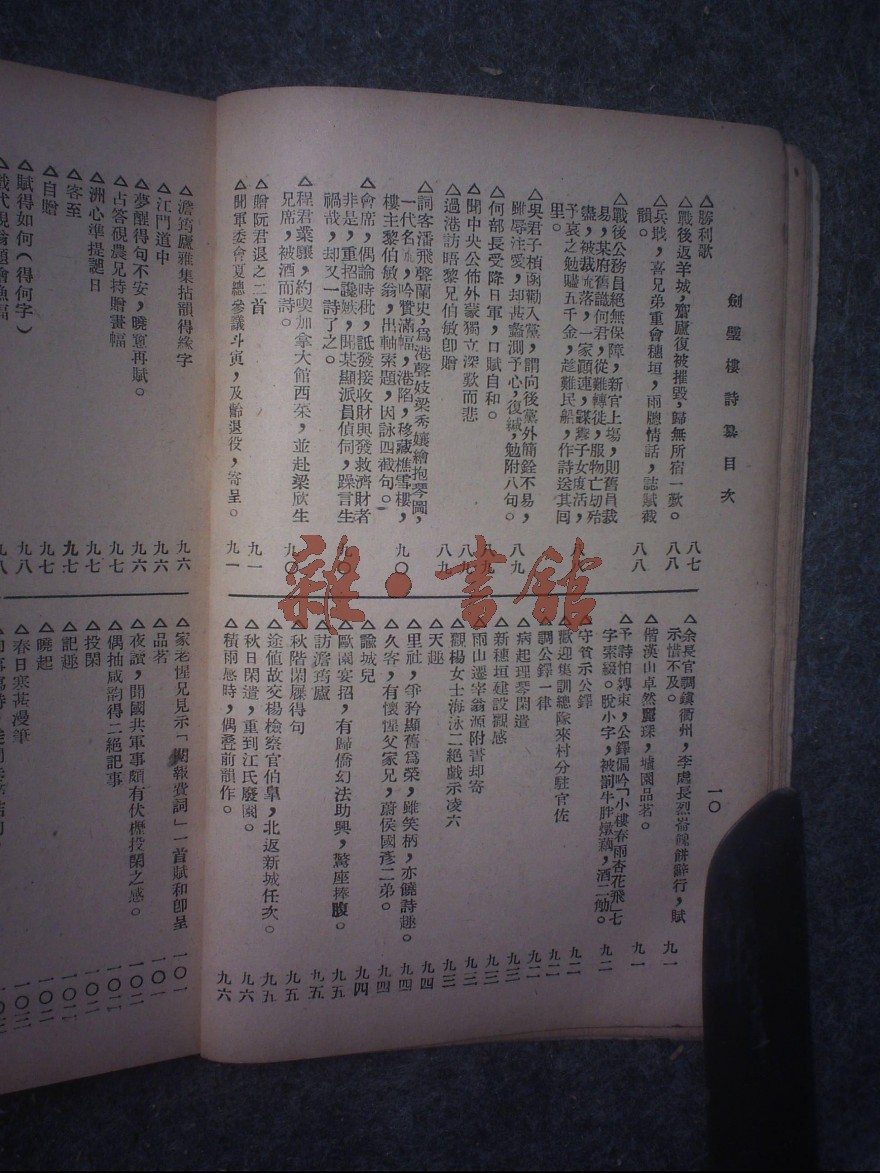 劍璧樓詩纂目次
一〇
△勝利歌
八七
△戰後返羊城,齋廬復被摧毀,歸無所宿一歎。
八八
△兵戢,喜兄弟重會穗垣,雨牕情話,誌賦截
韻。
八八
△戰後公務員絕無保障,新官上場,則舊員裁
易,某府舊識何君,從難轉徙,服物亡切殆
盡,被裁流落,一家顚連,謀鬻子女度活,
予哀之勉噓五千金,趁難民船,作詩送其囘
里。
八八
△吳君子楨函勸入黨,謂向後黨外簡銓不易,
雖辱注愛,却甚蠡測予心,復緘,勉附八句。
八九
△何部長受降日軍,口賦自和。
八九
△聞中央公佈外蒙獨立深歎而悲
八九
△過港訪晤黎兄伯敏卽贈
八九
△詞客潘飛聲蘭史,爲港聲妓梁秀孃繪抱琴圖,
一代名,吟贊滿幅,港陷,移藏樵雪樓,
樓主黎伯敏翁,出軸索題,因詠四截句。
九〇
△會席,偶論時秕,詆發接收財與發救濟財者
非是,重招讒嫉,聞某顯派員偵伺,躁言生
禍哉,却又一詩了之。
九〇
△程君業驥,約喫加拿大館西菜,並赴梁欣生
兄席,被酒而詩。
九〇
△贈阮君退之二首
九一
△聞軍委會夏總參議斗寅,及齡退役,寄呈。
九一
△余長官調鎭衢州,李處長烈崙餽餅辭行,賦
示惜不及。
九一
△偕漢山卓然麗琛,墟園品茗。
九一
△予詩怕縛束,公鐸偏吟「小樓春雨杏花飛」七
字索綴。脫小字,被罰牛胙燉藕,酒二觔。
九二
△守貧示公鐸
九二
△歡迎集訓總隊來村分駐官佐
九二
△調公鐸一律
九二
△病起理琴閑遣
九三
△新穗垣建設觀感
九三
△雨山遷宰翁源附書却寄
九三
△觀楊女士海泳二絕戲示凌六
九三
△天趣
九四
△里社,爭矜顯舊爲榮,雖笑柄,亦饒詩趣。
九四
△久客,有懷惺父家兄,蔚侯國彥二弟。
九四
△諭城兒
九四
△歐園宴招,有歸僑幻法助興,驚座捧腹。
九五
△訪澹筠廬
九五
△秋階閑屧得句
九五
△途値故交楊檢察官伯臯,北返新城任次。
九五
△秋日閑遣,重到江氏廢園。
九六
△積雨感時,偶叠前韻作。
九六
△澹筠廬雅集拈韻得緣字
九六
△江門道中
九六
△夢醒得句不安,曉窻再賦。
九六
△占答硯農兄持贈畫幅
九七
△洲心準提誕日
九七
△客至
九七
△自贈
九七
△賦得如何(得何字)
九八
△家老惺兄見示「閱報費詞」一首賦和卽呈
一〇一
△品茗
一〇一
△夜讀,聞國共軍事頗有伏櫪投閑之感。
一〇二
△偶抽咸韵得二絕記事
一〇二
△投閑
一〇二
△記趣
一〇二
△曉起
一〇二
△春日寒甚漫筆
一〇二
雜·書館